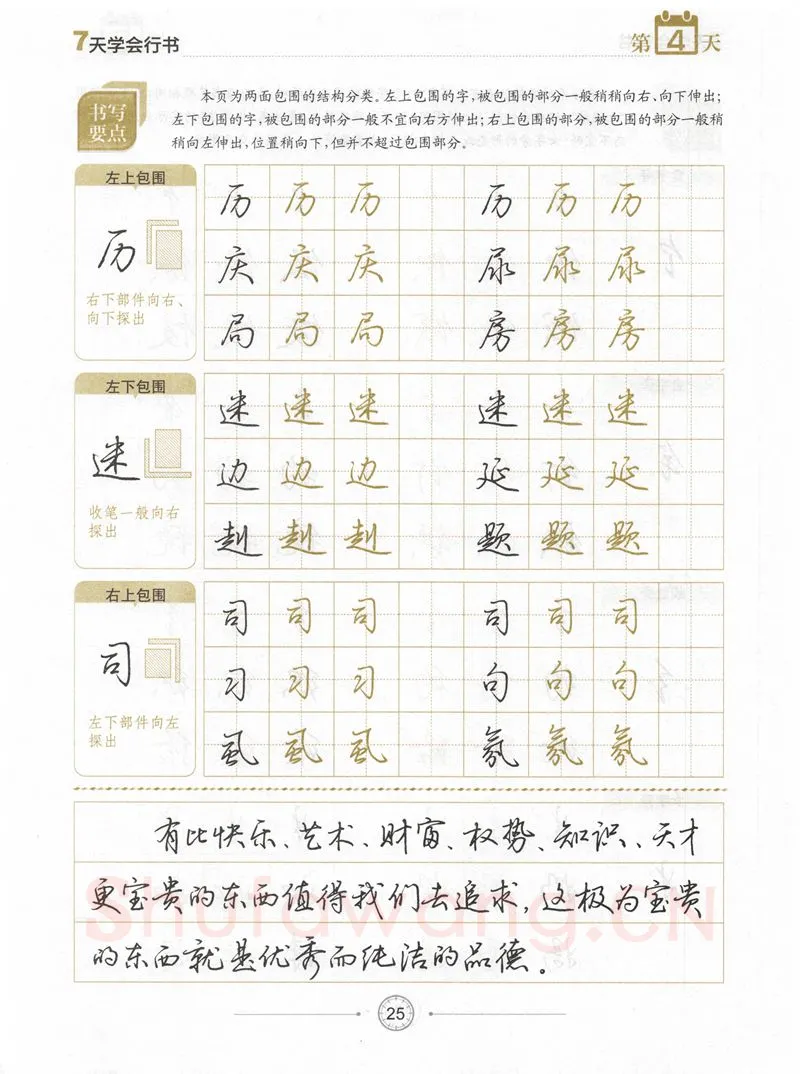 7天学会行书
第4天
书写要点
本页为两面包围的结构分类。左上包围的字,被包围的部分一般稍稍向右、向下伸出;
左下包围的字,被包围的部分一般不宜向右方伸出;右上包围的部分,被包围的部分一般稍
稍向左伸出,位置稍向下,但并不超过包围部分。
左上包围
历
右下部件向右、
向下探出
历 历 历 历 历 历
庆 庆 庆 尿 尿 尿
局 局 局 房 房 房
左下包围
迷
收笔一般向右
探出
迷 迷 迷 迷 迷 迷
边 边 边 延 延 延
赳 赳 赳 题 题 题
右上包围
司
左下部件向左
探出
司 司 司 司 司 司
习 习 习 句 句 句
虱 虱 虱 氛 氛 氛
有比快乐、艺术、财富、权势、知识、天才
更宝贵的东西值得我们去追求,这极为宝贵
的东西就是优秀而纯洁的品德。
Shufawang.CN
25